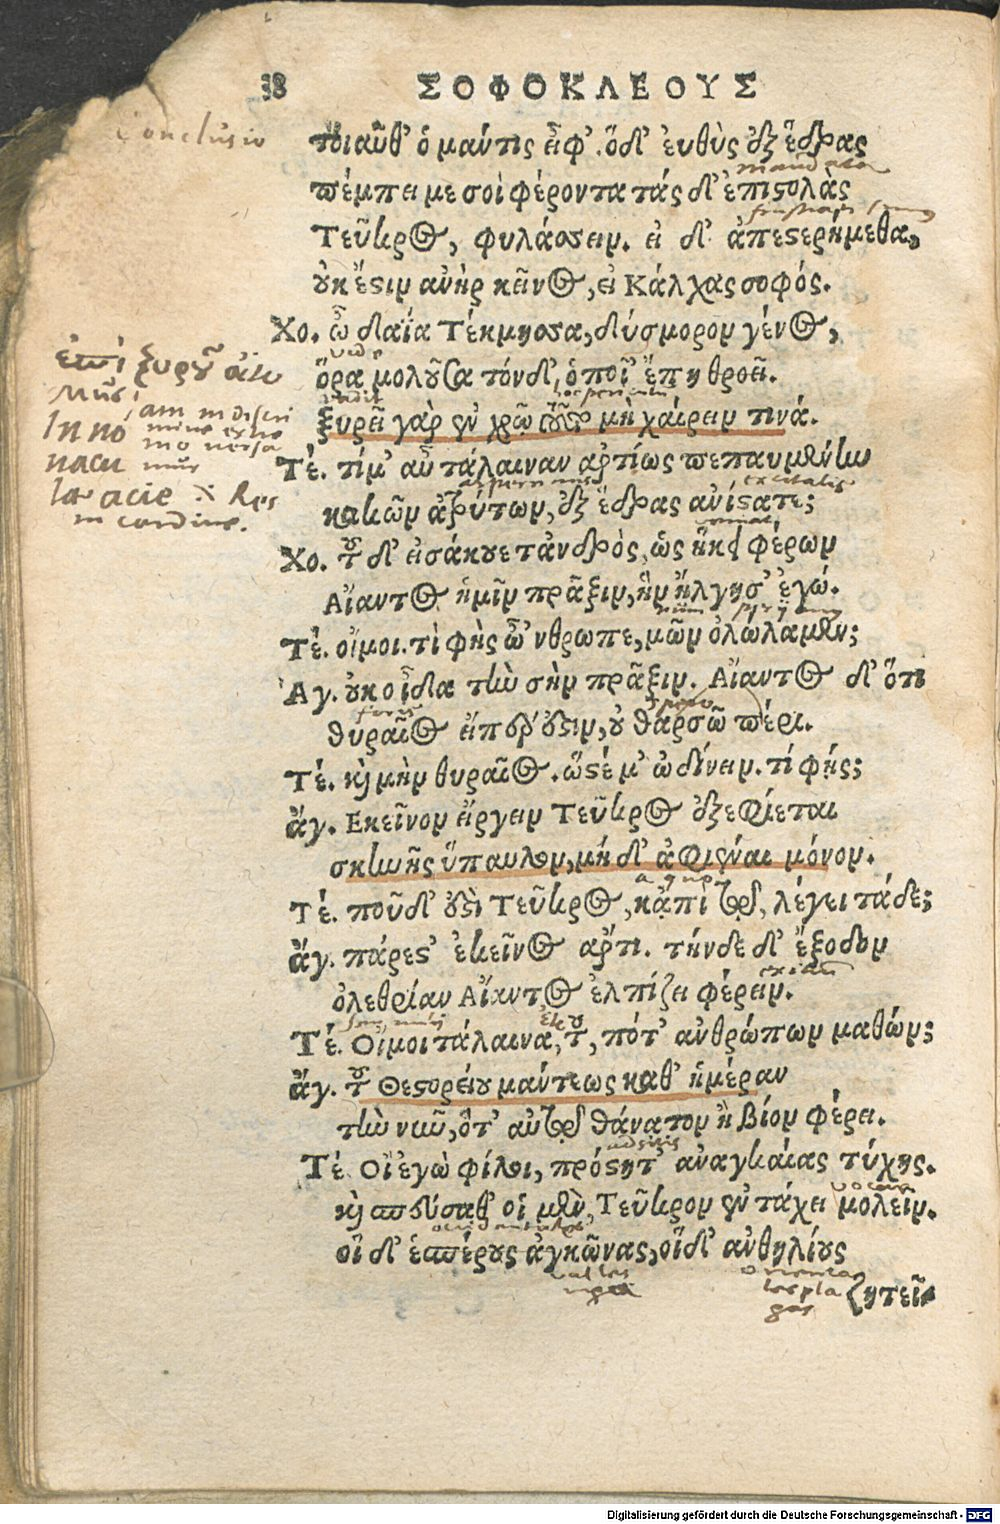 38 ΣΟΦΟΚΛΕΟΥΣ
Conclusio
τοιαῦθ' ὁ μάντις εἶφ'. ὅδ' ἐυθὺς ἐξ ἕδρας
mandata
πέμπει με σοὶ φέροντα τάς δ' ἐπιστολὰς
frustrati sumus
Τεῦκρος, φυλάσσειν. εἰ δ' ἀπεστερήμεθα,
ὀυκ ἔστιν ἀνὴρ κεῖνος, εἰ Κάλχας σοφός.
Χο. ὦ δαΐα Τέκμησσα, δύσμορον γένος,
ὅρα μολοῦσα τόνδ', ὁποῖ' ἔπη θροεῖ.
ἐπὶ ξυροῦ ἀκ
ξυρεῖ γὰρ ἐν χρῷ τοῦτο μὴ χαίρειν τινά.
mus iam in discri
mine extre
In no mo versa
nacu mur
la acie Res
in cardine.
Τέ. τίμ' αὖ τάλαιναν ἀρτίως πεπαυμένην
excitatis
κακῶν ἀτρύτων, ἐξ ἕδρας ἀνίστατε;
Χο. τοῦ δ' εἰσάκουε τἀνδρὸς, ὡς ἥκει φέρων
Αἴαντος ἡμῖν πρᾶξιν, ἣν ἤλγησ' ἐγώ.
Τέ. οἴμοι. τί φὴς ὦ'νθρωπε, μῶν ὀλώλαμεν;
Ἀγ. ὀυκ οἶδα τὴν σὴν πρᾶξιν. Αἴαντος δ' ὅτι
foris
θυραῖος εἴπερ ἐστιν, ὀυ θαρσῶ πέρι.
Τέ. καὶ μὴν θυραῖος. ὥστέ μ' ὠδίνειν. τί φής;
ἄγ. Ἐκεῖνον εἴργειν Τεῦκρος ἐξεφίεται
σκηνῆς ὕπαυλον, μήδ' ἀφιέναι μόνον.
Τέ. ποῦ δ' ἐστὶ Τεῦκρος, κἀπὶ τῷ, λέγει τάδε;
ἄγ. πάρεστ' ἐκεῖνος ἄρτι. τήνδε δ' ἔξοδον
ὀλεθρίαν Αἴαντος ἐλπίζει φέρειν.
Τέ. Οἴμοι τάλαινα, τοῦ, πότ' ἀνθρώπων μαθών;
ἄγ. τοῦ Θεστορείου μάντεως καθ' ἡμέραν
τὴν νῦν, ὅτ' αὐτῷ θάνατον ἢ βίον φέρει.
Τέ. Οἲ 'γὼ φίλοι, πρόστητ' ἀναγκαίας τύχης.
καὶ σπεύσαθ' οἱ μὲν, Τεῦκρον ἐν τάχει μολεῖν.
οἱ δ' ἑσπέρους ἀγκῶνας, οἱ δ' ἀνθηλίους
orientales
plagas
ζητεῖτ'
Digitalisierung gefördert durch die Deutsche Forschungsgemeinschaft - DFG